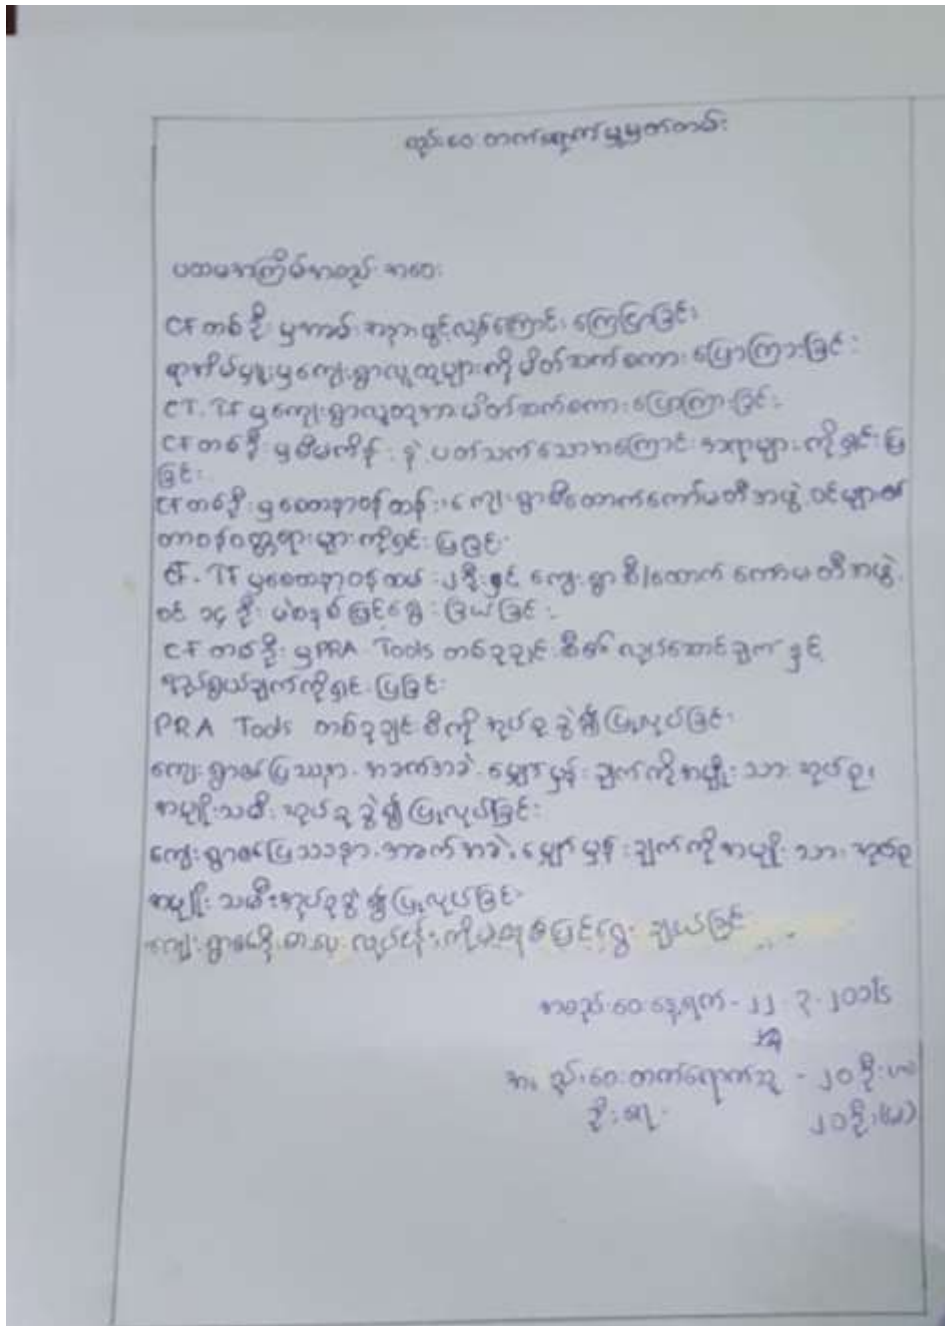 ပထမအကြိမ်အစည်းအဝေး
CF တစ်ဦးမှ အခမ်းအနားဖွင့်လှစ်ကြောင်းကြေငြာခြင်း
ရာအိမ်မှူးမှကျေးရွာလူထုများကိုမိတ်ဆက်စကားပြောကြားခြင်း
CF, TF မှကျေးရွာလူထုအားမိတ်ဆက်စကားပြောကြားခြင်း
CF တစ်ဦးမှစီမံကိန်းနှင့်ပတ်သက်သောအကြောင်းအရာများကိုရှင်းပြ
ခြင်း
CF တစ်ဦးမှစေတနာ့ဝန်ထမ်း၊ ကျေးရွာစီ/ထောက်ကော်မတီအဖွဲ့ဝင်များ၏
တာဝန်ဝတ္တရားများကိုရှင်းပြခြင်း
CF, TF မှစေတနာ့ဝန်ထမ်း ၂ ဦးနှင့် ကျေးရွာစီ/ထောက် ကော်မတီအဖွဲ့
ဝင် ၁၄ ဦး မဲစနစ်ဖြင့်ရွေးခြယ်ခြင်း
CF တစ်ဦးမှ PRA Tools တစ်ခုချင်းစီ၏ လျှပ်ဆောင်ချက်နှင့်
ရည်ရွယ်ချက်ကိုရှင်းပြခြင်း
PRA Tools တစ်ခုချင်းစီကိုအုပ်စုခွဲ၍ပြုလုပ်ခြင်း
ကျေးရွာ၏ပြဿနာ၊ အခက်အခဲ၊ မျှော်မှန်းချက်ကိုအမျိုးသားအုပ်စု၊
အမျိုးသမီးအုပ်စုခွဲ၍ပြုလုပ်ခြင်း
ကျေးရွာ၏ပြဿနာ၊ အခက်အခဲ၊ မျှော်မှန်းချက်ကိုအမျိုးသားအုပ်စု
အမျိုးသမီးအုပ်စုခွဲ၍ပြုလုပ်ခြင်း
ကျေးရွာ၏ လုပ်ငန်းကိုမဲစနစ်ဖြင့်ရွေးချယ်ခြင်း
အစည်းအဝေးနေ့ရက် - ၂၂
အစည်းအဝေးတက်ရောက်သူ - ၂၀ ဦး
ဦးရေ ၂၀ ဦး (မ)